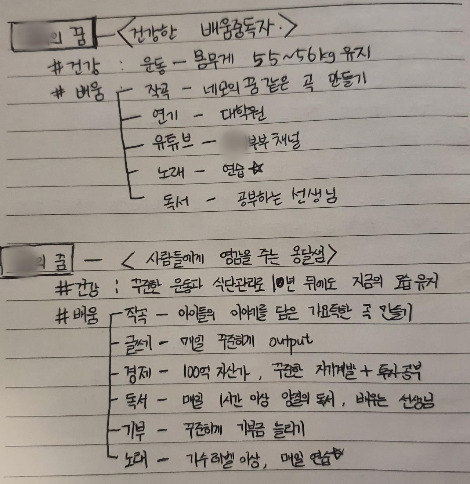 의 꿈 - <건강한 배움중독자>
# 건강 : 운동 - 몸무게 55~56kg 유지
# 배움 - 작곡 - 네모의 꿈 같은 곡 만들기
- 연기 - 대학원
- 유튜브 - 부부채널
- 노래 - 연습☆
- 독서 - 공부하는 선생님
의 꿈 - <사람들에게 영감을 주는 옹달샘>
# 건강 : 꾸준한 운동과 식단관리로 10년 뒤에도 지금의 모습 유지
# 배움 - 작곡 - 아이들의 이야기를 담은 가요톡한 곡 만들기
- 글쓰기 - 매일 꾸준하게 output
- 경제 - 100억 자산가, 꾸준한 자기계발 + 투자공부
- 독서 - 매일 1시간 이상 양질의 독서, 배우는 선생님
- 기부 - 꾸준하게 기부금 늘리기
- 노래 - 가수레벨 이상, 매일 연습☆